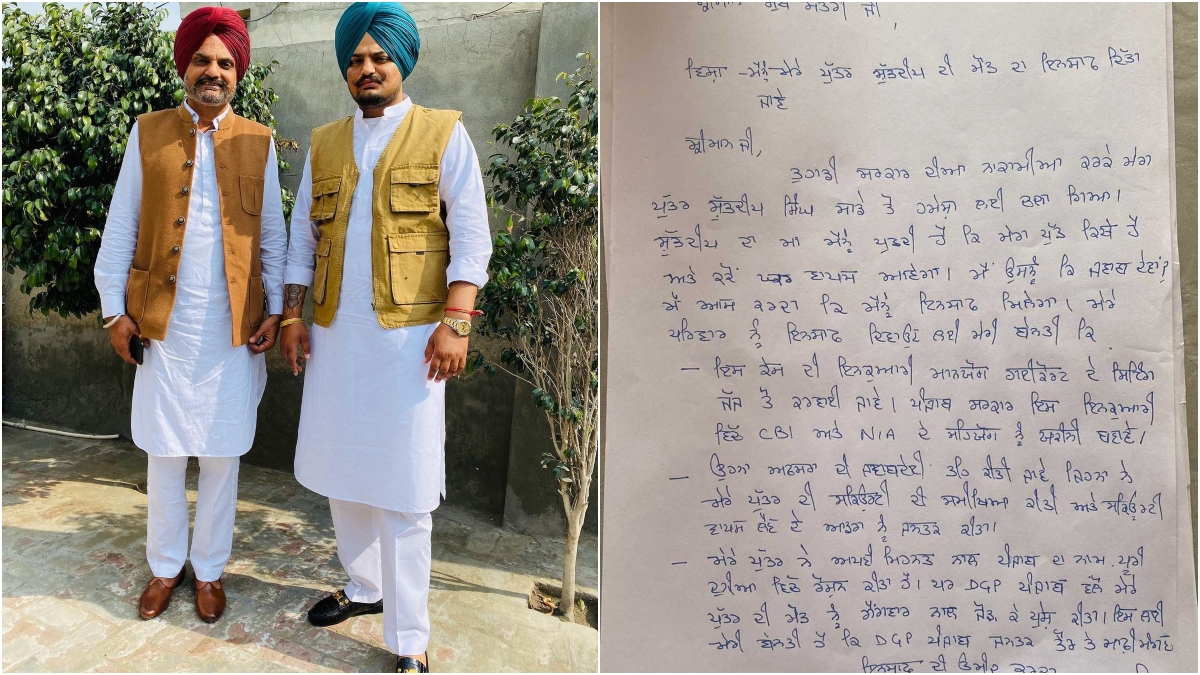 ਸ਼੍ਰੀਮਾਨ ਮੁੱਖ ਮੰਤਰੀ ਜੀ,
ਵਿਸ਼ਾ - ਮੈਨੂੰ ਮੇਰੇ ਪੁੱਤਰ ਸ਼ੁੱਭਦੀਪ ਦੀ ਮੌਤ ਦਾ ਇਨਸਾਫ ਦਿੱਤਾ
ਜਾਵੇ
ਸ਼੍ਰੀਮਾਨ ਜੀ,
ਤੁਹਾਡੀ ਸਰਕਾਰ ਦੀਆ ਨਕਾਮੀਆ ਕਰਕੇ ਮੇਰਾ
ਪੁੱਤਰ ਸ਼ੁੱਭਦੀਪ ਸਿੰਘ ਸਾਡੇ ਤੋਂ ਹਮੇਸ਼ਾ ਲਈ ਚਲਾ ਗਿਆ।
ਸ਼ੁੱਭਦੀਪ ਦਾ ਮਾ ਮੈਨੂੰ ਪੁਛਦੀ ਹੈ ਕਿ ਮੇਰਾ ਪੁੱਤ ਕਿਥੇ ਹੈ
ਅਤੇ ਕਦੋਂ ਵਾਪਸ ਆਵੇਗਾ। ਮੈਂ ਉਸਨੂੰ ਕਿ ਜਵਾਬ ਦੇਵਾਂ?
ਮੈਂ ਆਸ ਕਰਦਾ ਕਿ ਮੈਨੂੰ ਇਨਸਾਫ ਮਿਲੇਗਾ। ਮੇਰੇ
ਪਰਿਵਾਰ ਨੂੰ ਇਨਸਾਫ ਦਿਵਾਉਣ ਲਈ ਮੇਰੀ ਬੇਨਤੀ ਕਿ
— ਇਸ ਕੇਸ ਦੀ ਇਨਕੁਆਰੀ ਮਾਨਯੋਗ ਹਾਈਕੋਰਟ ਦੇ ਸਿਟਿੰਗ
ਜੱਜ ਤੋਂ ਕਰਵਾਈ ਜਾਵੇ। ਪੰਜਾਬ ਸਰਕਾਰ ਇਸ ਇਨਕੁਆਰੀ
ਵਿੱਚ CBI ਅਤੇ NIA ਦੇ ਸਹਿਯੋਗ ਨੂੰ ਯਕੀਨੀ ਬਣਾਵੇ।
— ਉਹਨਾ ਅਫਸਰਾ ਦੀ ਜਵਾਬਦੇਹੀ ਤਹਿ ਕੀਤੀ ਜਾਵੇ ਜਿਹਨਾ ਨੇ
ਮੇਰੇ ਪੁੱਤਰ ਦੀ ਸਕਿਉਰਟੀ ਦੀ ਸਮੀਖਿਆ ਕੀਤੀ ਅਤੇ ਸਕਿਉਰਟੀ
ਵਾਪਸ ਲੈਣ ਦੇ ਆਡਰਾ ਨੂੰ ਜਨਤਕ ਕੀਤਾ।
— ਮੇਰੇ ਪੁੱਤਰ ਨੇ ਆਪਣੇ ਮਿਹਨਤ ਨਾਲ ਪੰਜਾਬ ਦਾ ਨਾਮ ਪੂਰੀ
ਦੁਨੀਆ ਵਿੱਚ ਰੌਸ਼ਨ ਕੀਤਾ ਹੈ। ਪਰ DGP ਪੰਜਾਬ ਵੱਲੋਂ ਮੇਰੇ
ਪੁੱਤਰ ਦੀ ਮੌਤ ਨੂੰ ਗੈਂਗਵਾਰ ਨਾਲ ਜੋੜ ਕੇ ਪੇਸ਼ ਕੀਤਾ। ਇਸ ਲਈ
ਮੇਰੀ ਬੇਨਤੀ ਹੈ ਕਿ DGP ਪੰਜਾਬ ਜਨਤਕ ਤੌਰ ਤੇ ਮਾਫ਼ੀ ਮੰਗਣ
ਇਨਸਾਫ ਦੀ ਉਮੀਦ ਕਰਦਾ